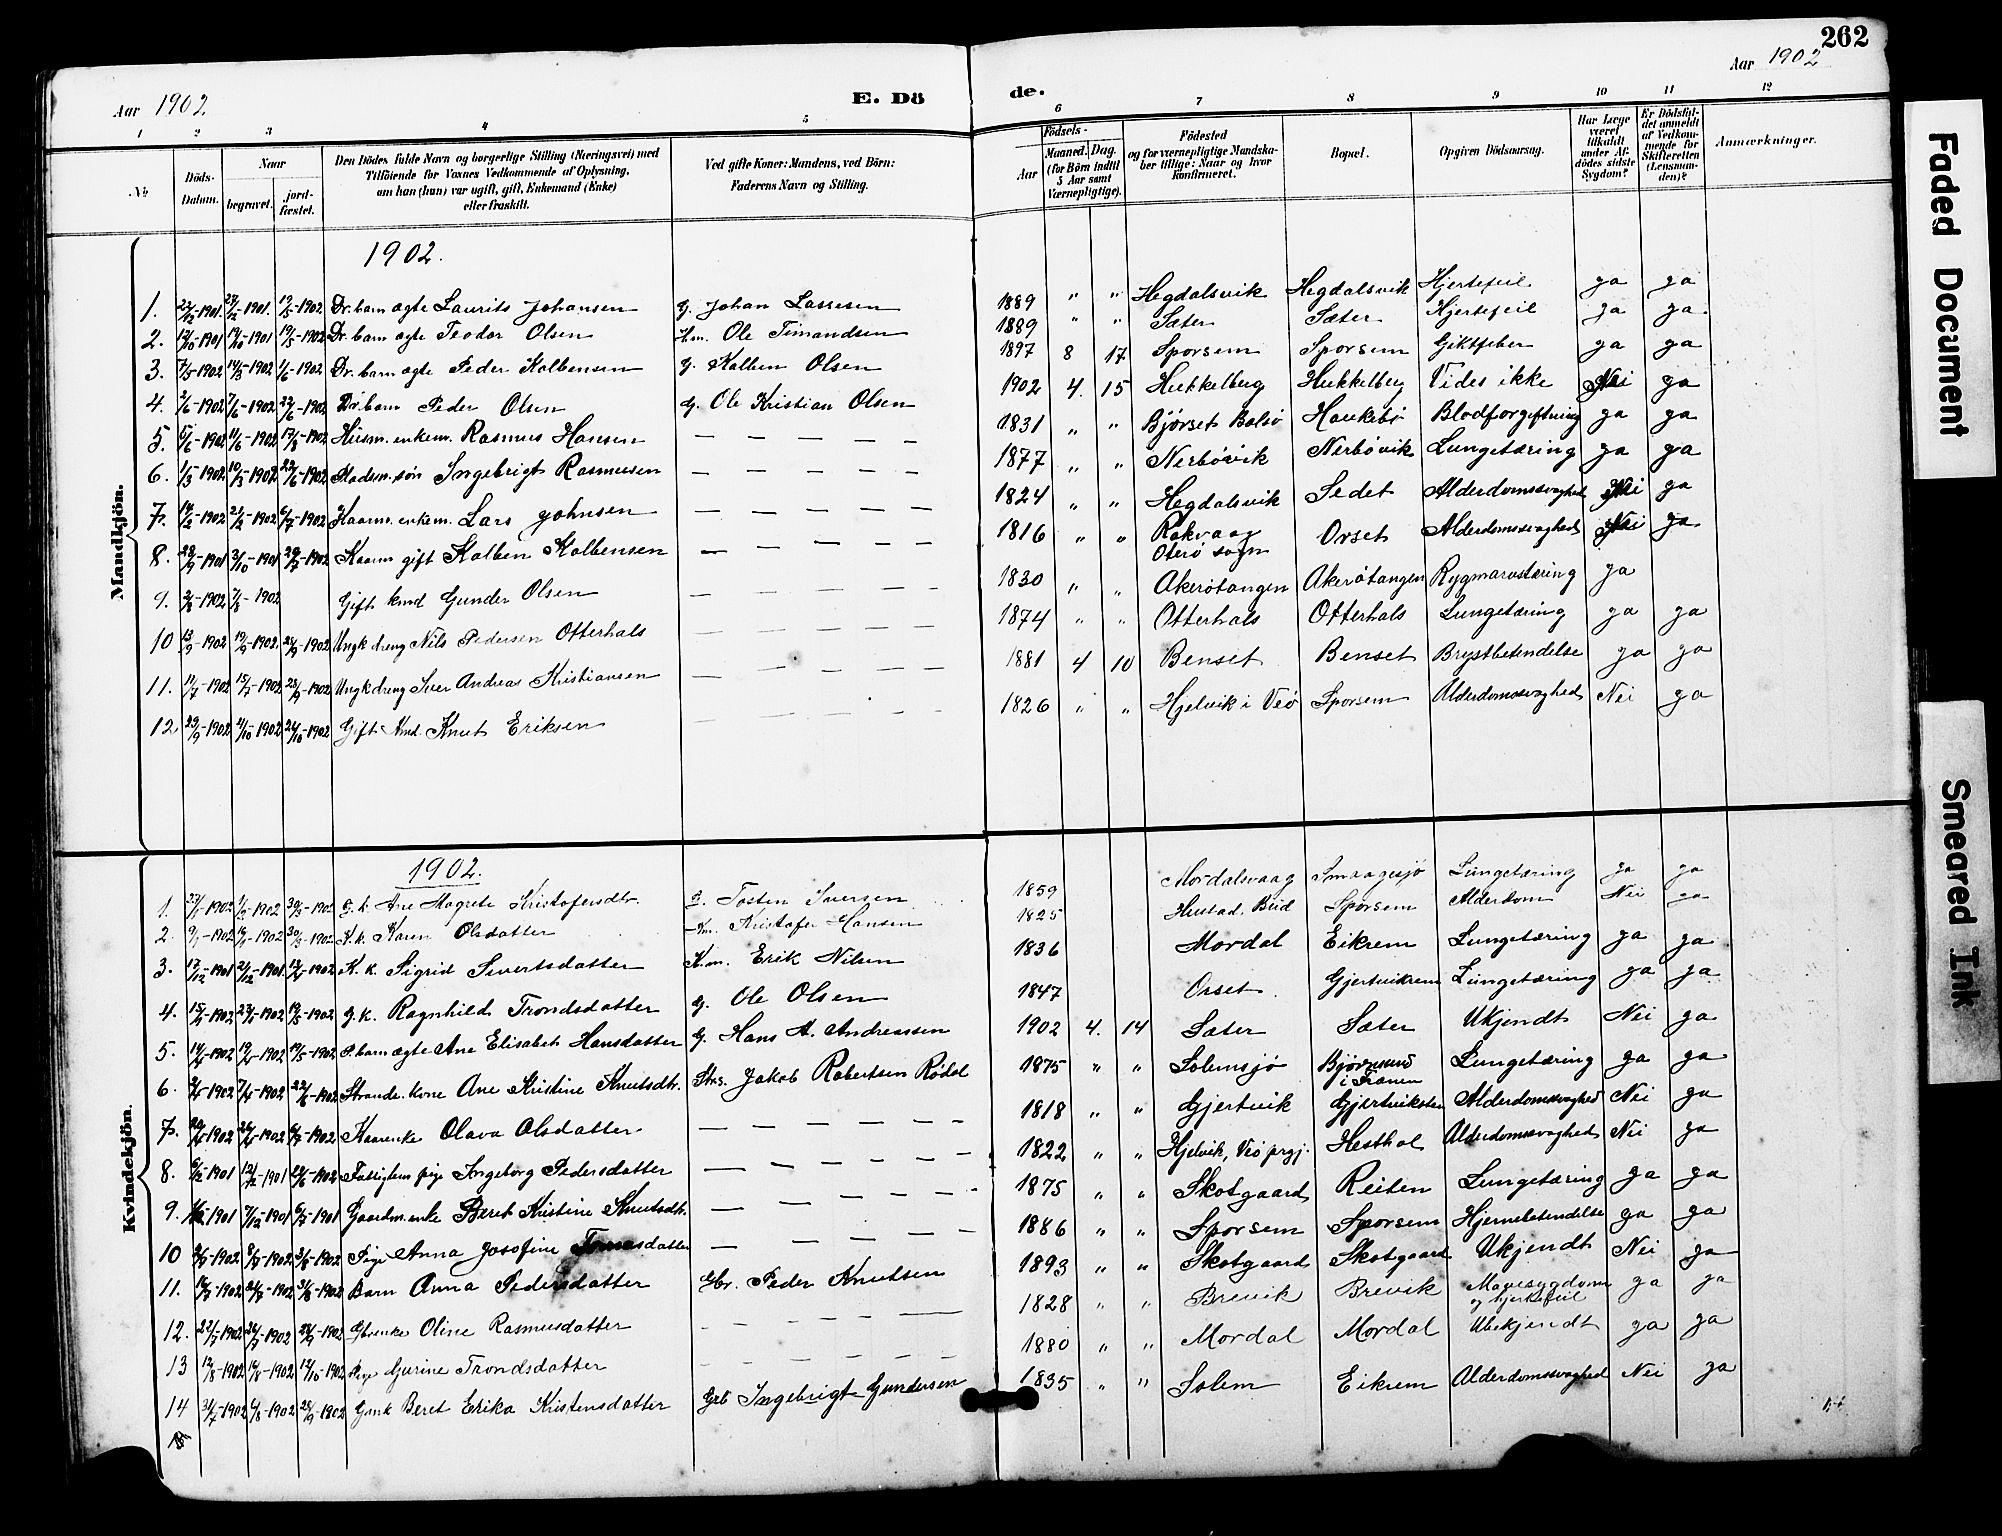 262
Aar 1902
E. Dö
de.
Aar 1902
1 2 3 4 5 6 7 8 9 10 11 12
No
Döds-Datum.
Naar
begravet.
jord-fæstet.
Den Dödes fulde Navn og borgerlige Stilling (Næringsvei) med
Tilföiende for Voxnes Vedkommende af Oplysning,
om han (hun) var ugift, gift, Enkemand (Enke)
eller fraskilt.
Ved gifte Koner: Mandens, ved Börn:
Faderens Navn og Stilling.
Födsels-
Aar
Maaned. Dag.
(for Börn indtil
5 Aar samt
Værnepligtige).
Födested
og for værnepligtige Mandska-
ber tillige: Naar og hvor
konfirmeret.
Bopæl.
Opgiven Dödsaarsag.
Har Læge
været
tilkaldt
under Af-
dödes sidste
Sygdom?
Er Dödsfal-
det anmeldt
af Vedkom-
mende for
Skifteretten
(Lensman-
den)?
Anmærkninger.
Mandkjön.
1902.
1. 22/12-1901. 27/12-1901. 19/5-1902. Dr. barn ægte Laurits Johansen G. Johan Lassesen 1889 " " Hegdalsvik Hegdalsvik Hjertefeil ja ja
2. 12/10-1901 19/10-1901 19/5-1902 Dr. barn ægte Teodor Olsen Hm. Ole Timandsen 1889 " " Sæter Sæter Hjertefeil ja ja.
3. 7/5-1902 14/5-1902 1/6-1902 Dr. barn ægte Peder Kolbensen G. Kolben Olsen 1897 8 17 Sporsem Sporsem Giktfeber ja ja
4. 2/6-1902 7/6-1902 22/6-1902 Dr. barn Peder Olsen G. Ole Kristian Olsen 1902 4. 15 Hukkelberg Hukkelberg Vides ikke Nei ja
5. 5/6-1902 11/6-1902 17/8-1902 Husm. enkem. Rasmus Hansen — — — — — 1831 " " Bjørset Bolsø Haukebø Blodforgiftning ja ja
6. 1/3-1902 10/3-1902 29/6-1902 Stadsm. søn Ingebrigt Rasmussen — — — — — 1877 " " Nerbøvik Nerbøvik Lungetæring ja ja
7. 14/2-1902 21/2-1902 6/7-1902 Kaarm. enkem. Lars Johnsen — — — — — 1824 " " Hegdalsvik Sedet Alderdomssvaghed Nei ja
8. 28/9-1901 3/10-1901 20/7-1902 Kaarm gift Kolben Kolbensen — — — — — 1816 " " Rakvaag Oterø sogn Orset Alderdomssvaghed Nei ja
9. 2/8-1902 7/8-1902 Gift kmd Gunder Olsen — — — — — 1830 " " Akerøtangen Akerøtangen Rygmarvstæring ja
10 13/9-1902 19/9-1902 28/9-1902 Ungk dreng Nils Pedersen Otterhals — — — — — 1874 " " Otterhals Otterhals Lungetæring ja ja
11. 11/7-1902 15/7-1902 28/9-1902 Ungk dreng Iver Andreas Kristiansen — — — — — 1881 4 10 Benset Benset Brystbetendelse ja ja
12 29/9-1902 4/10-1902 26/10-1902 Gift Kmd. Knut Eriksen — — — — — 1826 " " Hjelvik i Veø Sporsem Alderdomssvaghed Nei ja
Kvindekjön.
1902.
1. 1902 1902 30/3-1902 G. k. Ane Magrete Kristofersdtr. G. Tosten Iversen 1859 Mordalsvaag Smaagesjø Lungetæring ja ja
2. 9/1-1902 1902 30/3-1902 K. k. Karen Olsdatter Km. Kristofer Hansen 1825 Hustad. Bud Sporsem Alderdom Nei ja
3. 17/12-1901 21/12-1901. 1902 K. k. Sigrid Sivertsdatter K. m. Erik Nilsen 1836 Mordal Eikrem Lungetæring ja ja
4. 1902 1902 19/5-1902 G. k. Ragnhild Trondsdatter G. Ole Olsen 1847 Orset Gjertvikrem Lungetæring ja ja
5. 14/4-1902 19/4-1902 19/5-1902 P. barn ægte Ane Elisabet Hansdatter G. Hans A. Andreassen 1902 4. 14 Sæter Sæter Ukjendt Nei ja
6. 2/4-1902 7/4-1902 22/6-1902 Strands. kone Ane Kristine Knutsdtr. Strs. Jakob Robertsen Rødal 1875 " " Solemsjø Bjørnsund i Frænen Lungetæring ja ja
7. 1902 1902 6/7-1902 Kaarenke Olava Olsdatter — — — — — 1818 " " Gjertvik Gjertviksten Alderdomssvaghed Nei ja
8. 1901 1901 1902 Fattiglem pige Ingeborg Pedersdatter — — — — — 1822 " " Hjelvik, Veø prgj. Hesthol Alderdomssvaghed Nei ja
9. 1901 7/12-1901 6/7-1901 Gaardm. enke Beret Kristine Knutsdtr. — — — — — 1875 " " Skotgaard Reiten Lungetæring ja ja
10 1902 1902 3/8-1902 Pige Anna Josofine Tomasdatter — — — — — 1886 " " Sporsem Sporsem Hjernebetendelse ja ja
11. 1902 1902 1902 Barn Anna Pedersdatter Gbr. Peder Knutsen 1893 " " Skotgaard Skotgaard Ukjendt Nei ja
12. 22/7-1902 26/7-1902 28/9-1902 Gbrenke Oline Rasmusdatter — — — — — 1828 " " Brevik Brevik Mavesygdom og hjertefeil ja ja
13 12/8-1902 16/8-1902 12/10-1902 Pige Gurine Trondsdatter — — — — — 1880 " " Mordal Mordal Ubekjendt ja ja
14 31/7-1902 6/8-1902 28/9-1902 Gmk Beret Erika Kristensdatter Grb Ingebrigt Gundersen 1835 " " Solem Eikrem Alderdomssvaghed Nei ja
15
Faded Document
Smeared Ink